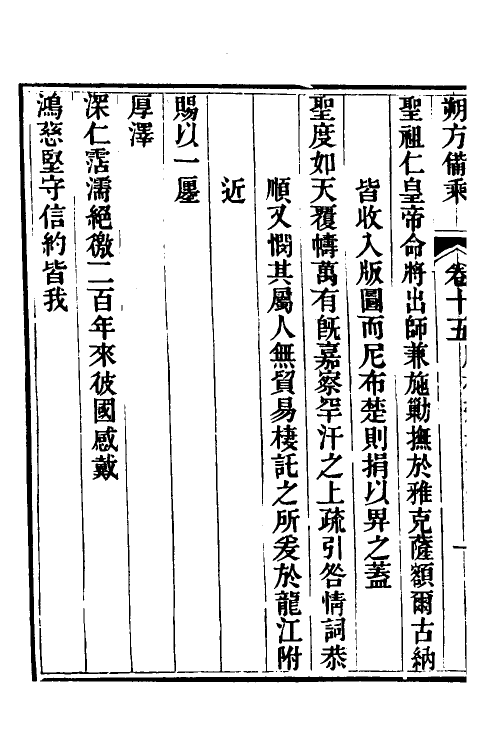 朔方備乘
卷十五
一
聖祖仁皇帝命將出師兼施勦撫於雅克薩額爾古納
皆收入版圖而尼布楚則捐以畀之蓋
聖度如天覆幬萬有旣嘉察罕汗之上疏引咎情詞恭
順又憫其屬人無貿易棲託之所爰於龍江附
近
賜以一廛
厚澤
深仁霑濡絕徼二百年來彼國感戴
鴻慈堅守信約皆我